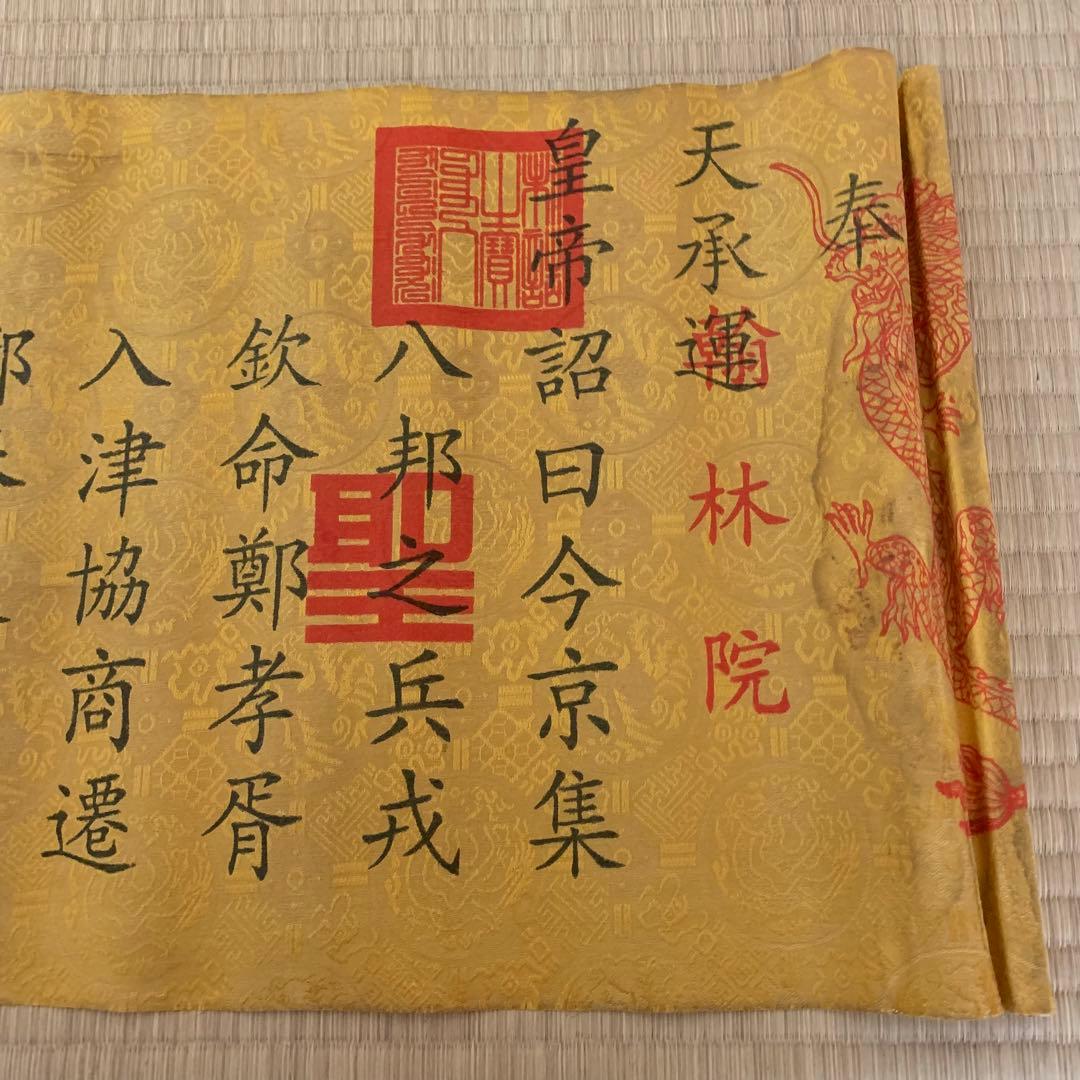 奉
天承運
翰林院
皇帝
詔曰今京集
八邦之兵戎
欽命鄭孝胥
入津協商遷
聖